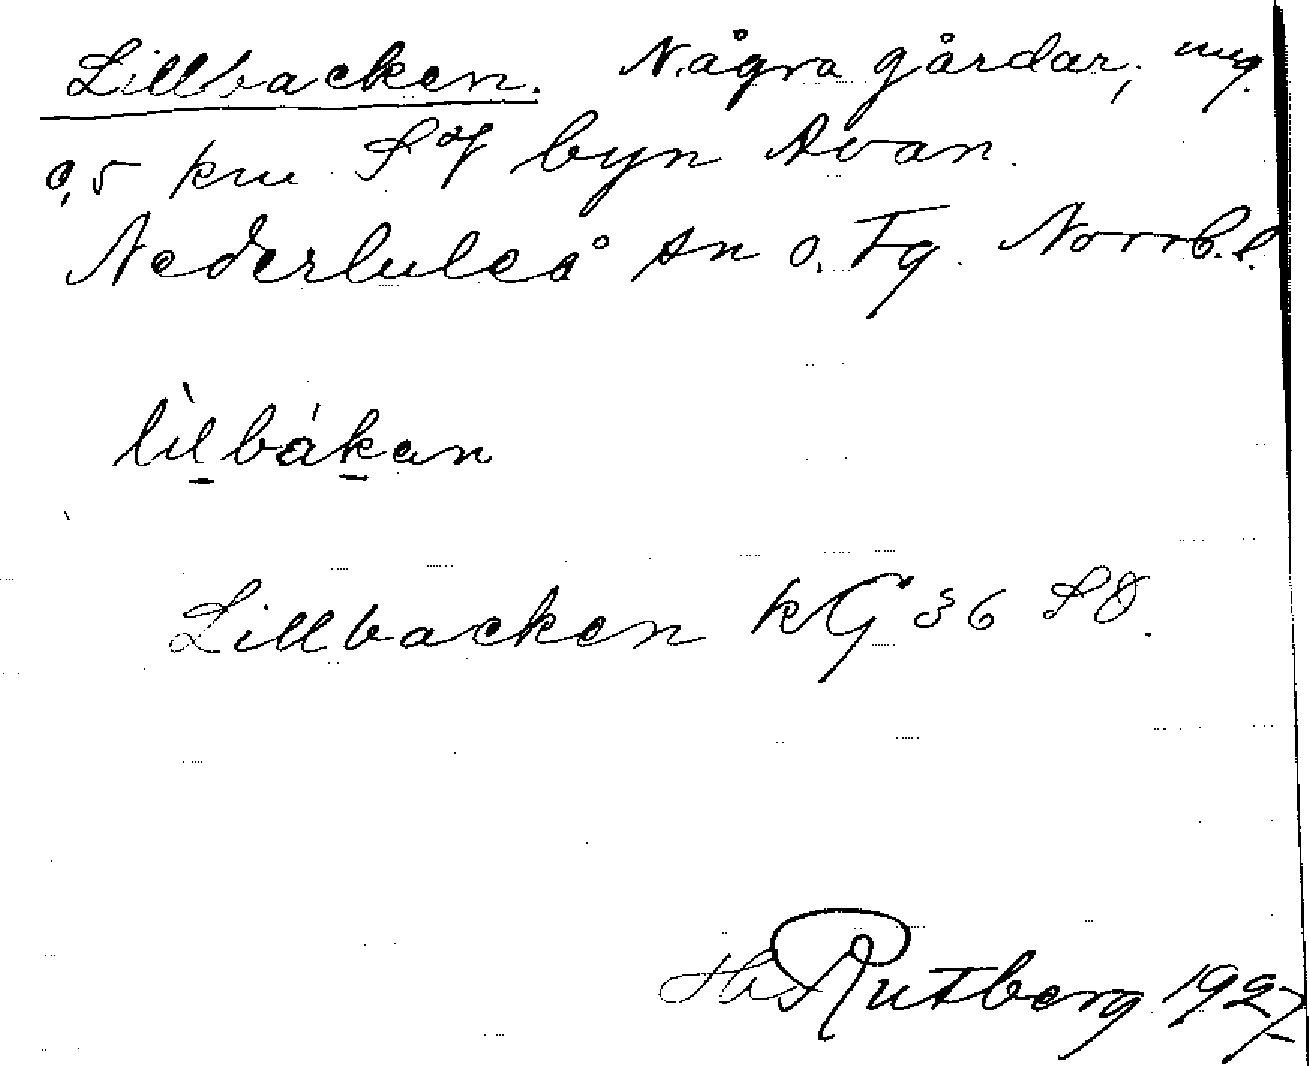 Lillbacken. Några gårdar, ung.
0,5 km S of byn Avan.
Nederluleå sn o. Tg. Norrb. l.
lìlbákan
Lillbacken kG 36 SO.
Rutberg 1927